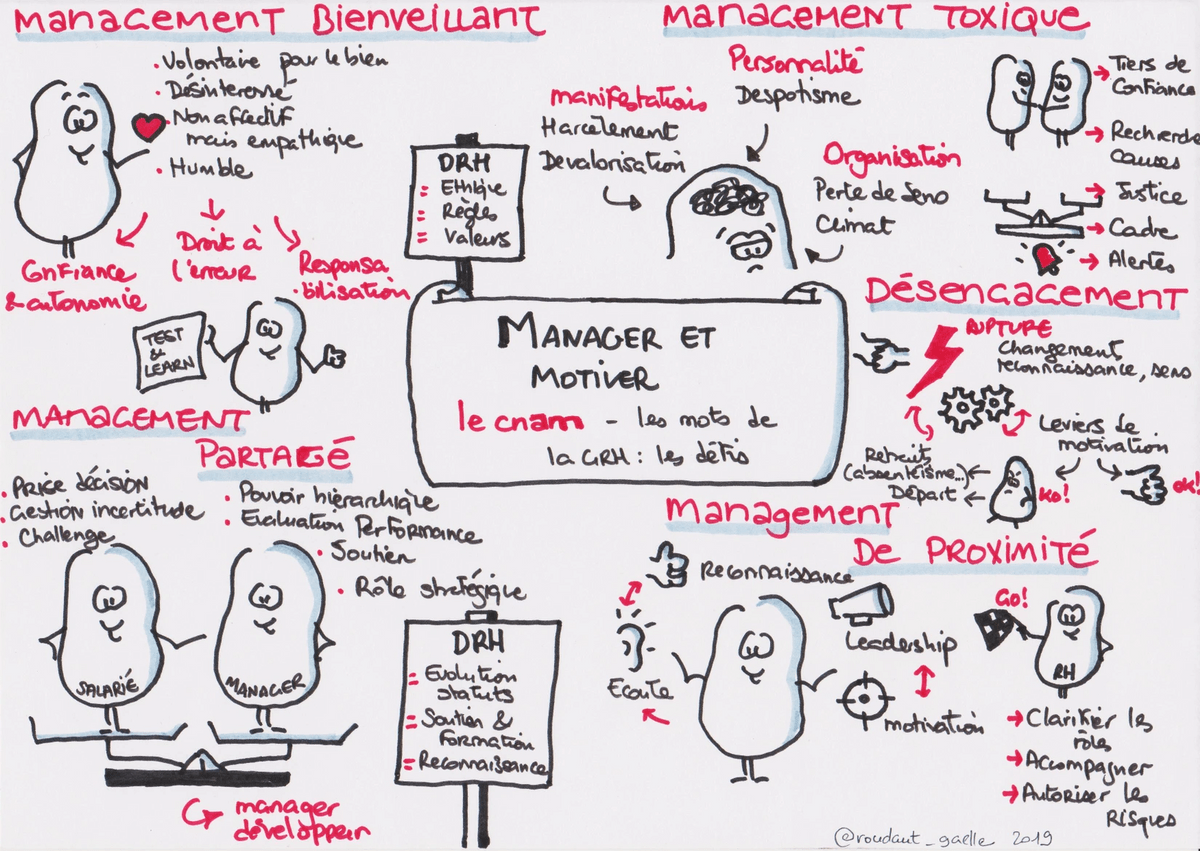 MANAGEMENT BIENVEILLANT
• Volontaire pour le bien
• Désinteressé
• Non affectif
mais empathique
• Humble
Confiance
& autonomie
Droit à
l'erreur
Responsa
bilisation
TEST
&
LEARN
DRH
= Ethique
= Règles
= Valeurs
MANAGEMENT TOXIQUE
Personnalité
Despotisme
manifestations
Harcèlement
Devalorisation
Organisation
Perte de Sens
Climat
→ Tiers de
Confiance
→ Recherche
causes
→ Justice
→ Cadre
→ Alertes
MANAGER ET
MOTIVER
le cnam - les mots de
la GRH : les défis
DÉSENGAGEMENT
RUPTURE
Changement
reconnaissance, sens
Leviers de
motivation
Retraits
(absentéisme...)
Départ
KO!
OK!
MANAGEMENT
PARTAGÉ
• Prise décision
• Gestion incertitude
• Challenge
• Pouvoir hiérarchique
• Evaluation Performance
• Soutien
• Rôle stratégique
SALARIÉ
MANAGER
manager
développeur
DRH
= Evolution
statuts
= Soutien &
Formation
= Reconnaissance
Management
DE PROXIMITÉ
Reconnaissance
Ecoute
Leadership
motivation
GO!
RH
→ Clarifier les
rôles
→ Accompagner
→ Autoriser les
Risques
@roudaut_gaelle 2019